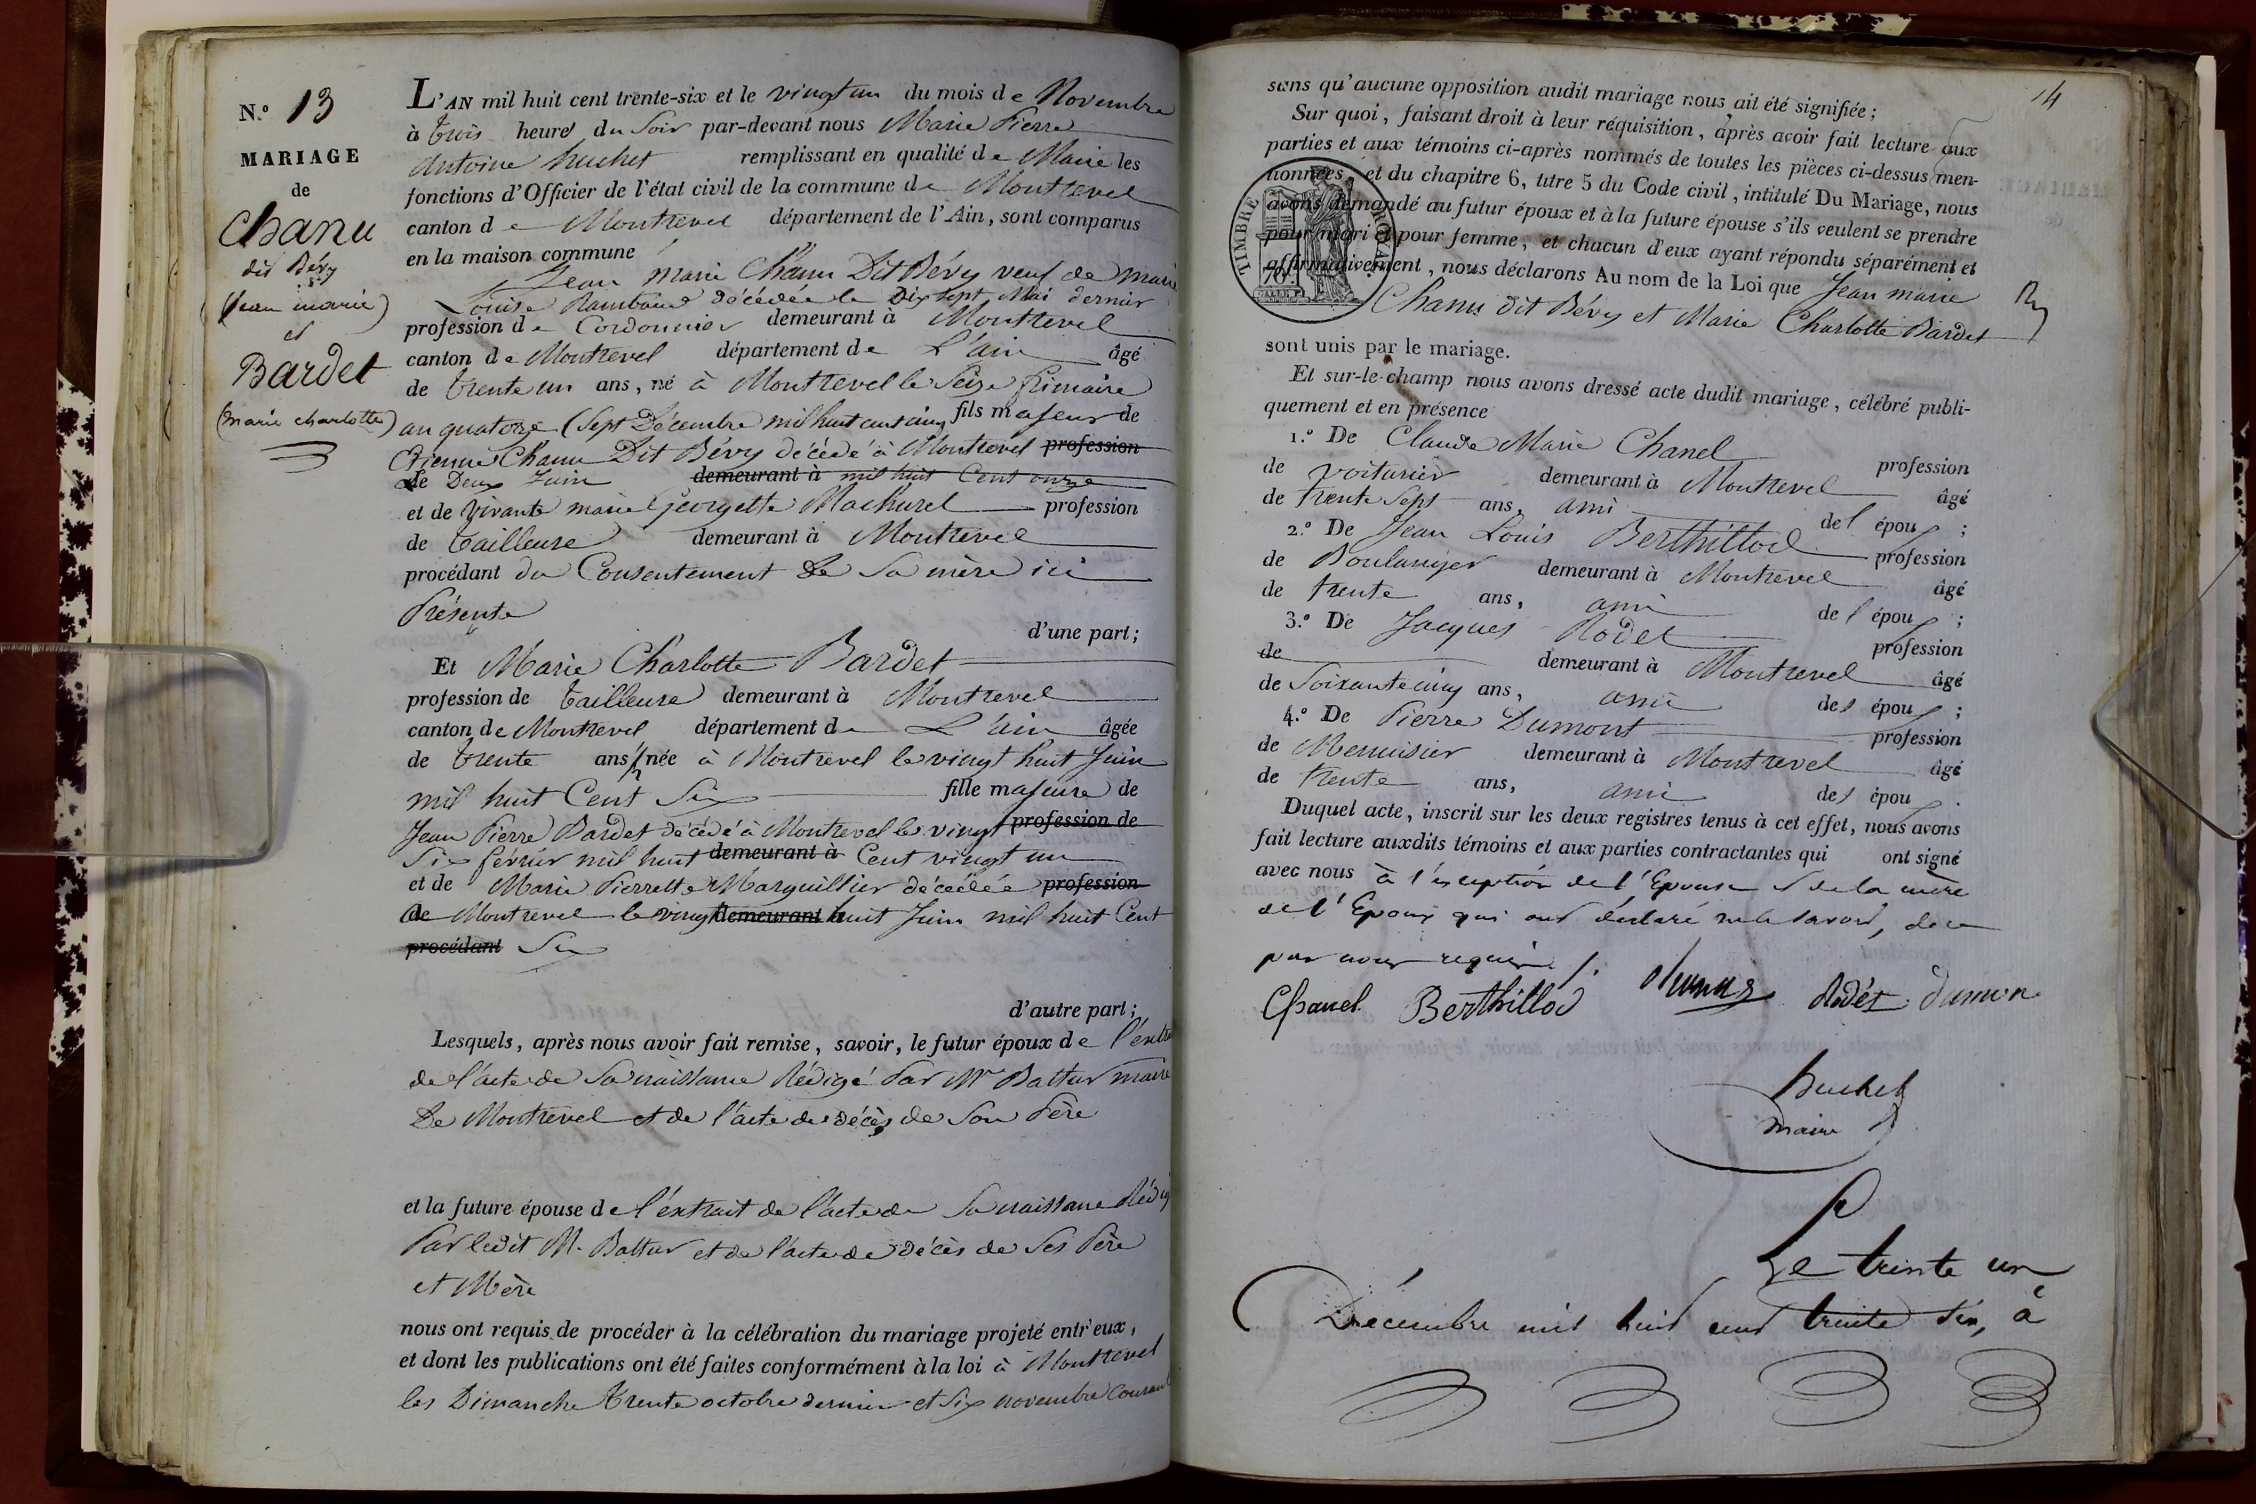 N.º 13
MARIAGE
de
Chanu
dit Bévy
(Jean marie)
et
Bardet
(marie charlotte)
L'AN mil huit cent trente-six et le vingt un du mois de Novembre
à trois heures du Soir par-devant nous Marie Pierre
Antoine huchet remplissant en qualité de Maire les
fonctions d'Officier de l'état civil de la commune de Montrevel
canton de Montrevel département de l'Ain, sont comparus
en la maison commune
Jean marie Chanu Dit Bévy veuf de marie
Louise Rambaud décédée le Dix sept Mai dernier
profession de Cordonnier demeurant à Montrevel
canton de Montrevel département de L'ain âgé
de trente un ans, né à Montrevel le Seize frimaire
an quatorze (Sept Décembre mil huit cent cinq fils majeur de
Etienne Chanu Dit Bévy décédé à Montrevel profession
Le Deux Juin demeurant à mil huit Cent onze
et de vivante marie Georgette Machurel profession
de tailleuse demeurant à Montrevel
procédant du Consentement De Sa mère ici
Présente
d'une part;
Et Marie Charlotte Bardet
profession de tailleuse demeurant à Montrevel
canton de Montrevel département de L'ain âgée
de trente ans, née à Montrevel le vingt huit Juin
mil huit Cent Six fille majeure de
Jean Pierre Bardet décédé à Montrevel le vingt profession de
Six février mil huit demeurant à Cent vingt un
et de Marie Pierrette Marguillier décédée profession
de Montrevel le vingt demeurant à huit Juin mil huit Cent
procédant Six
d'autre part;
Lesquels, après nous avoir fait remise, savoir, le futur époux de l'extrait
de l'acte de Sa naissance Rédigé Par Mr Battur maire
De Montrevel et de l'acte de décès de Son Père
et la future épouse de l'extrait de l'acte de Sa naissance Rédigé
Par ledit M. Battur et de l'acte de décès de Ses Père
et Mère
nous ont requis de procéder à la célébration du mariage projeté entr'eux,
et dont les publications ont été faites conformément à la loi à Montrevel
les Dimanche trente octobre dernier et Six novembre Courant
14
sans qu'aucune opposition audit mariage nous ait été signifiée;
Sur quoi, faisant droit à leur réquisition, après avoir fait lecture aux
parties et aux témoins ci-après nommés de toutes les pièces ci-dessus men-
tionnées, et du chapitre 6, titre 5 du Code civil, intitulé Du Mariage, nous
avons demandé au futur époux et à la future épouse s'ils veulent se prendre
pour mari et pour femme, et chacun d'eux ayant répondu séparément et
affirmativement, nous déclarons Au nom de la Loi que Jean marie
TIMBRE ROYAL
Chanu dit Bévy et Marie Charlotte Bardet
sont unis par le mariage.
Et sur-le-champ nous avons dressé acte dudit mariage, célébré publi-
quement et en présence
1.º De Claude Marie Chanel profession
de voiturier demeurant à Montrevel âgé
de trente Sept ans, ami del épou ;
2.º De Jean Louis Berthillod profession
de Boulanger demeurant à Montrevel âgé
de trente ans, ami de l épou ;
3.º De Jacques Rodet profession
de demeurant à Montrevel âgé
de Soixante cinq ans, ami des épou ;
4.º De Pierre Dumont profession
de Menuisier demeurant à Montrevel âgé
de trente ans, ami des épou .
Duquel acte, inscrit sur les deux registres tenus à cet effet, nous avons
fait lecture auxdits témoins et aux parties contractantes qui ont signé
avec nous à l'exception de l'Epouse & de la mère
de l'Epoux qui ont déclaré ne le savoir, de ce
par nous requis /.
Chanel Berthillod Rodet dumon
huchet
maire
Le trente un
Décembre mil huit cent trente six, à